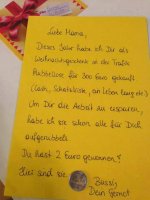 Liebe Mama,
Dieses Jahr habe ich Dir als
Weihnachtsgeschenk in der Trafik
Rubbellose für 300 Euro gekauft
(Cash, Schatzkiste, ein Leben lang etc.)
Um Dir die Arbeit zu ersparen,
habe ich sie schon alle für Dich
aufgerubbelt.
Du hast 2 Euro gewonnen!
Hier sind sie
Bussis,
Dein Gernot